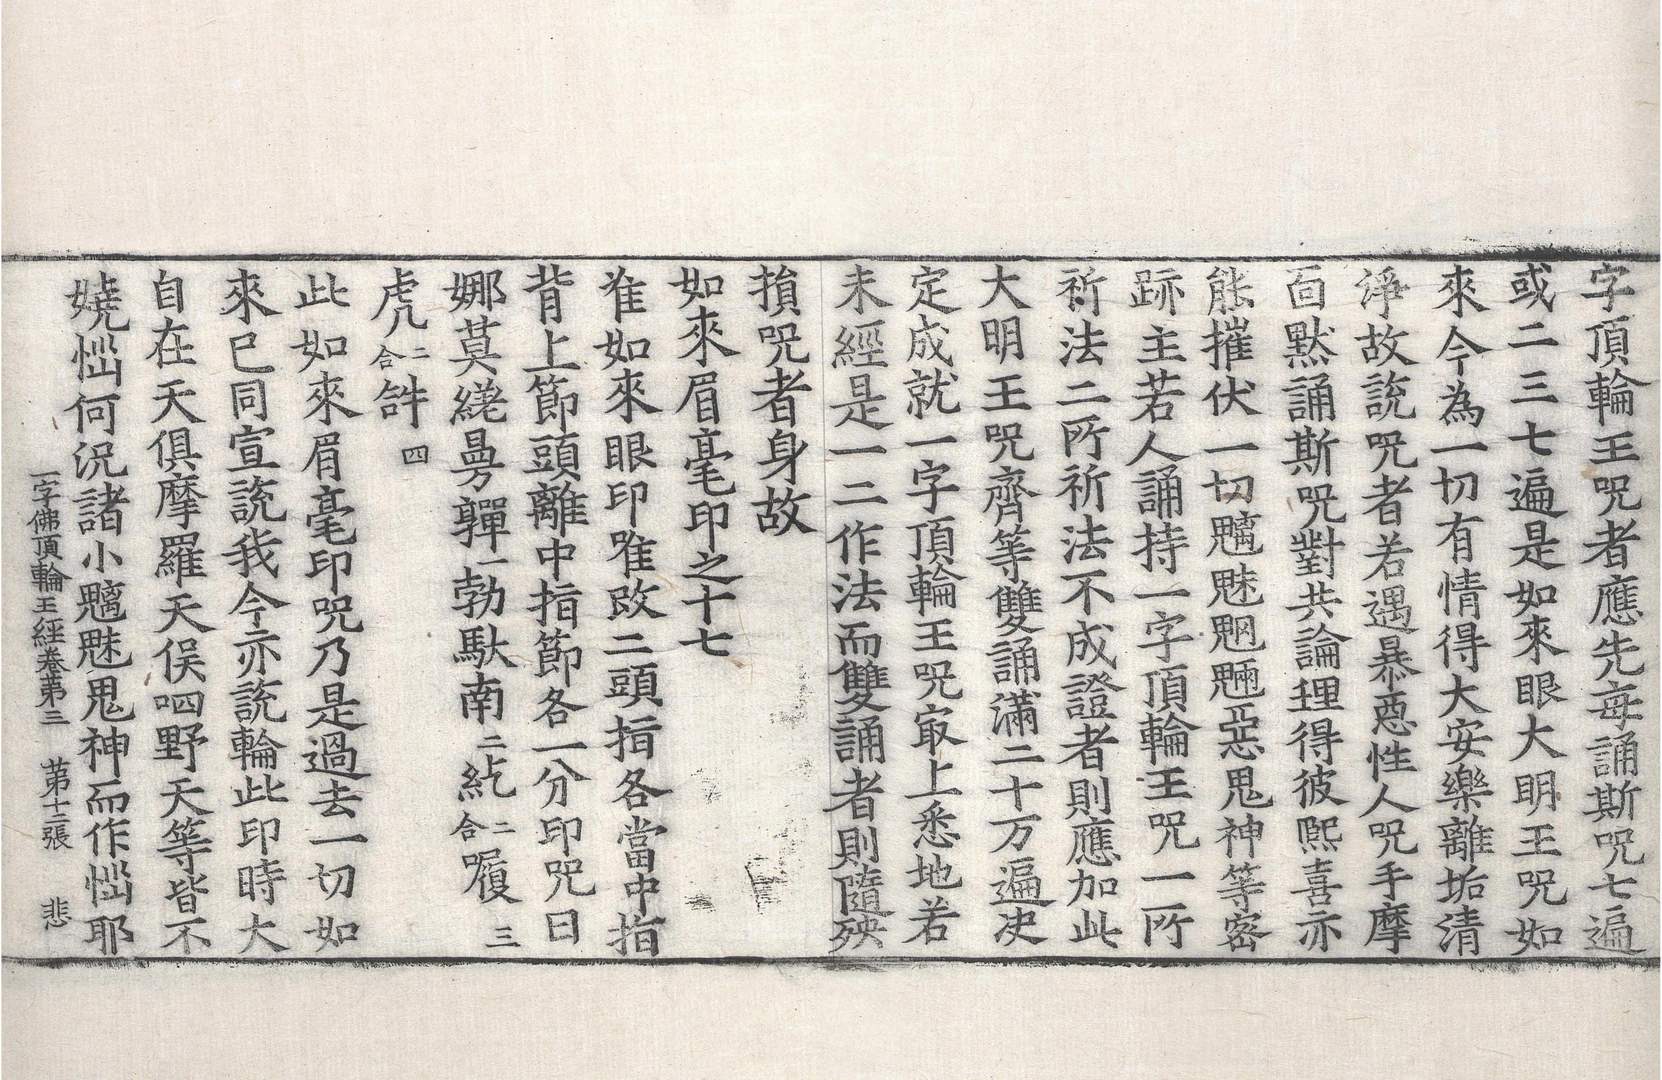 字頂輪王呪者應先每誦斯呪七遍
或二三七遍是如來眼大明王呪如
來今為一切有情得大安樂離垢清
淨故說呪者若遇暴惡性人呪手摩
面默誦斯呪對共論理得彼熙喜亦
能摧伏一切魑魅魍魎惡鬼神等密
跡主若人誦持一字頂輪王呪一所
祈法二所祈法不成證者則應加此
大明王呪齊等雙誦滿二十万遍决
定成就一字頂輪王呪最上悉地若
未經是一二作法而雙誦者則隨殃
損呪者身故
如來眉毫印之十七
准如來眼印唯改二頭指各當中指
背上節頭離中指節各一分印呪曰
娜莫縒曼㗚一勃馱南二紇二合囑三
虎𠆙二合𤙖四
此如來眉毫印呪乃是過去一切如
來已同宣說我今亦說輪此印時大
自在天俱摩羅天俁呬野天等皆不
嬈惱何況諸小魑魅鬼神而作惱耶
一字佛頂輪王經卷第三　第十二張　悲